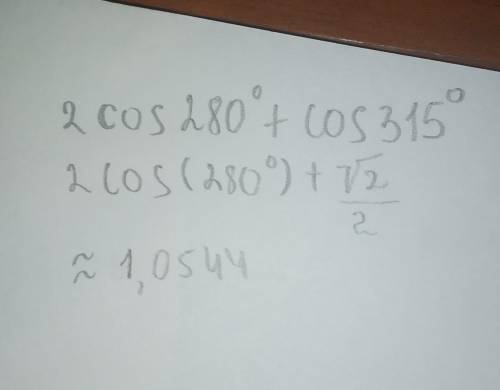 2 cos 280° + cos 315°
2 cos (280°) + √2/2
≈ 1,0544